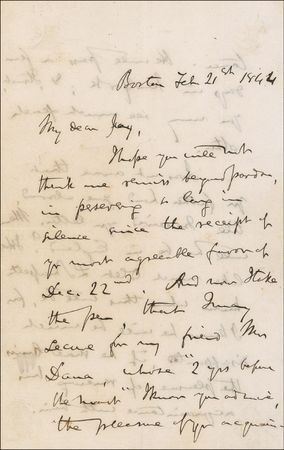 Boston Feb 21st 1844
My dear Jay,
I hope you will not
think me remiss beyond pardon,
in persevering so long in
silence since the receipt of
yr most agreeable favor of
Dec. 22nd. And now I take
the pen that I may
secure for my friend Mr
Dana, whose "2 yrs before
the mast" I know you admire,
the pleasure of yr acquain-